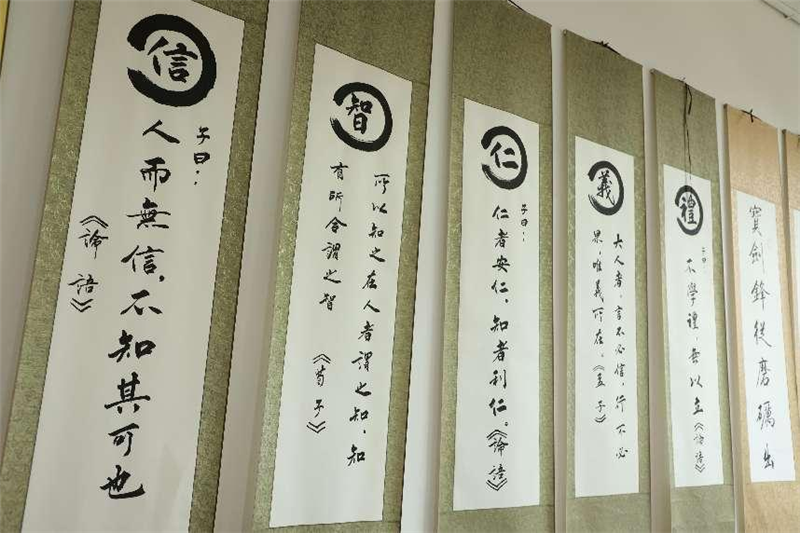 信
子曰：
人而無信，不知其可也
《論語》
智
所以知之在人者謂之知，知
有所合謂之智 《荀子》
仁
子曰：
仁者安仁，知者利仁。《論語》
義
大人者，言不必信，行不必
果，唯義所在。《孟子》
禮
子曰：
不學禮，無以立《論語》
寳劍鋒從磨礪出